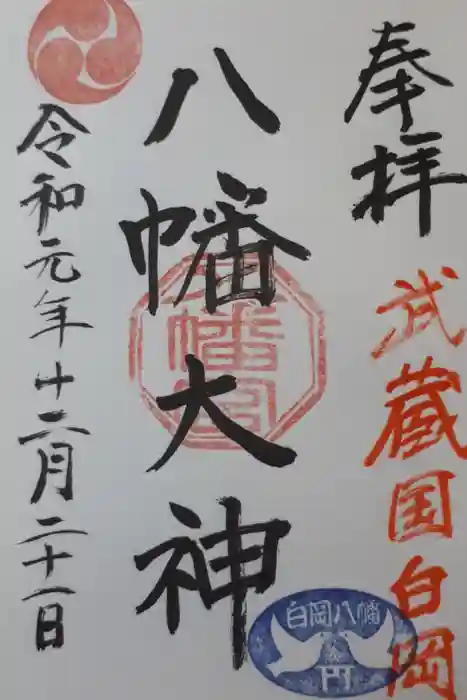 奉拝
武蔵国白岡
八幡大神
八幡宮
令和元年十二月二十一日
白岡八幡